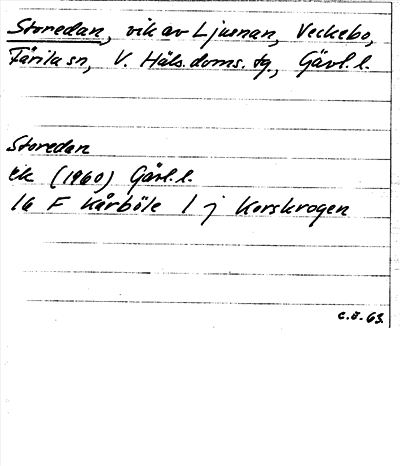 Storedan, vik av Ljusnan, Veckebo,
Färila sn, V. Häls. doms. tg., Gävl. l.
Storedan
ek (1960) Gävl. l.
16 F Kårböle 1 j Korskrogen
C.Ö. 63.